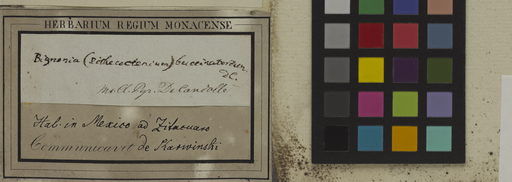 HERBARIUM REGIUM MONACENSE
Bignonia (Pithecoctenium) buccinatorium
DC.
m. A. Pyr. De Candolle
Hab. in Mexico ad Zitacuaro
Communicavit de Karwinski